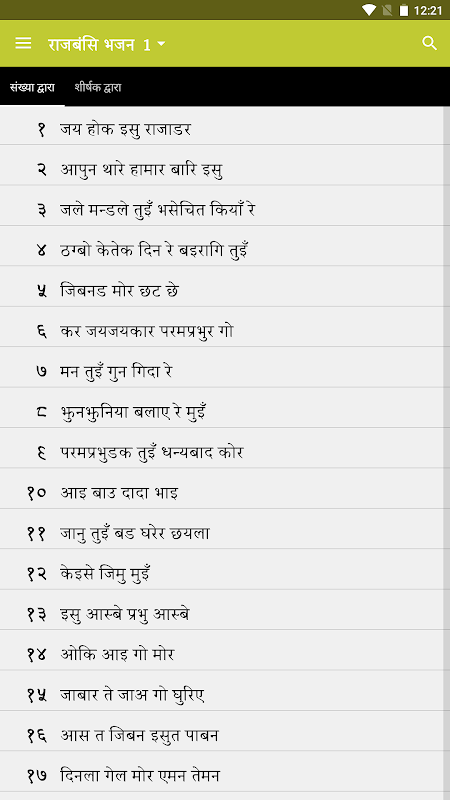 12:21
राजबंसि भजन 1
संख्या द्वारा शीर्षक द्वारा
१ जय होक इसु राजाडर
२ आपुन थारे हामार बारि इसु
३ जले मन्डले तुइँ भसेचित कियाँ रे
४ ठग्बो केतेक दिन रे बइरागि तुइँ
५ जिबनड मोर छट छे
६ कर जयजयकार परमप्रभुर गो
७ मन तुइँ गुन गिदा रे
८ झुनझुनिया बलाए रे मुइँ
९ परमप्रभुडक तुइँ धन्यबाद कोर
१० आइ बाउ दादा भाइ
११ जानु तुइँ बड घरेर छयला
१२ केइसे जिमु मुइँ
१३ इसु आस्बे प्रभु आस्बे
१४ ओकि आइ गो मोर
१५ जाबार ते जाअ गो घुरिए
१६ आस त जिबन इसुत पाबन
१७ दिनला गेल मोर एमन तेमन